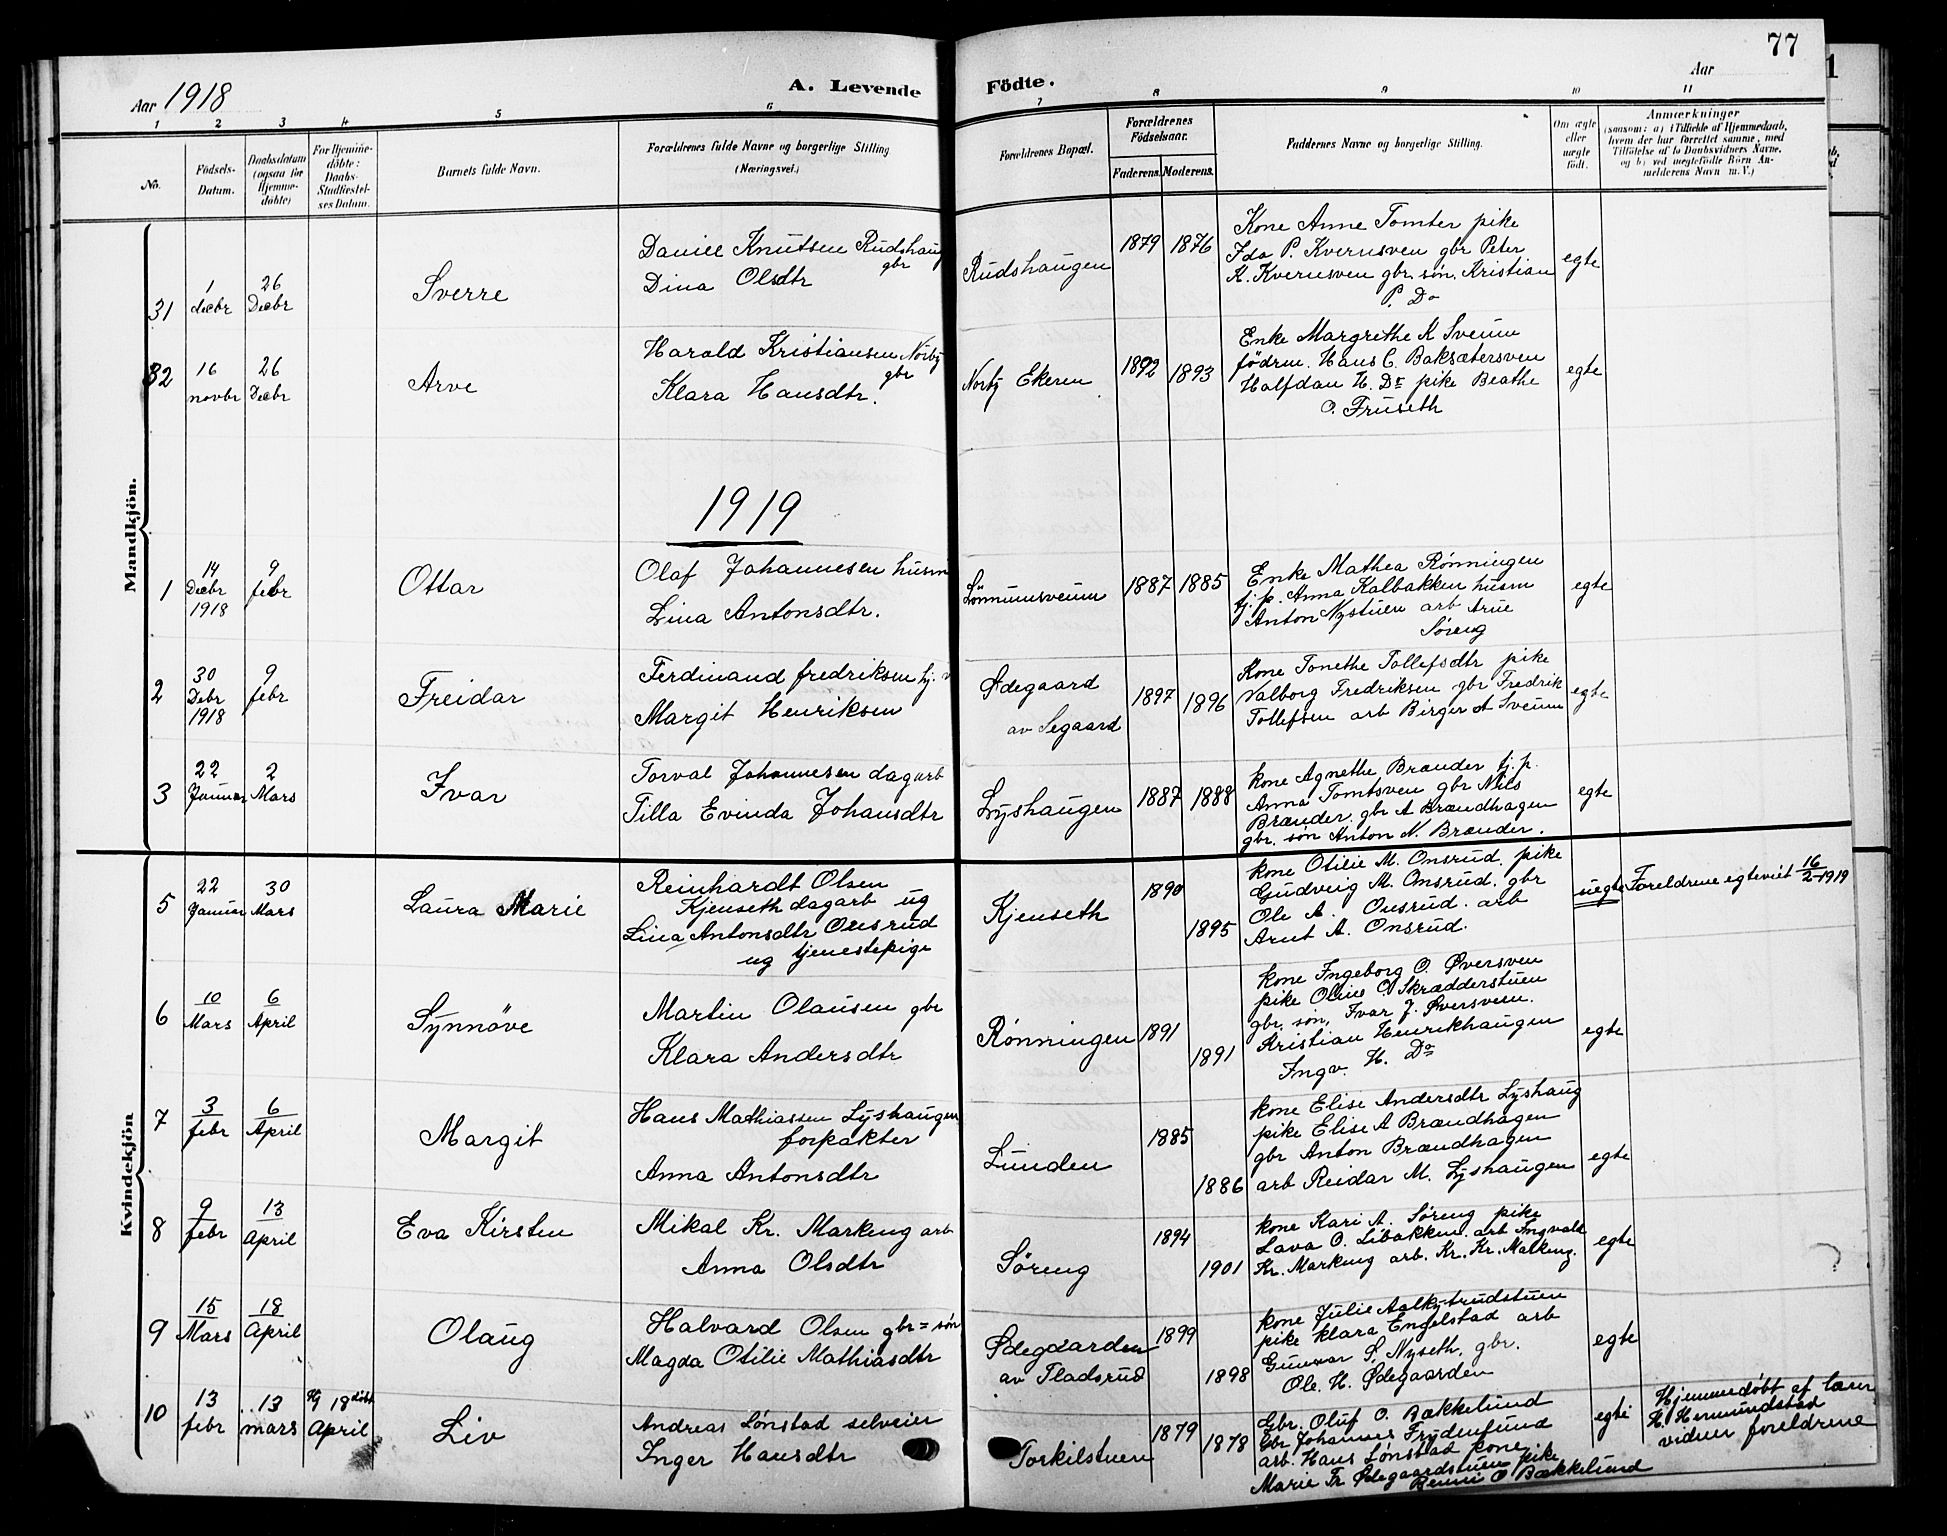 77
Aar 1918
A. Levende Födte.
Aar
1 2 3 4 5 6 7 8 9 10 11
No.
Födsels-Datum.
Daabsdatum (ogsaa for Hjemme-döbte)
For Hjemme-döbte: Daabs-Stadfæstel-ses Datum.
Barnets fulde Navn.
Forældrenes fulde Navne og borgerlige Stilling (Næringsvei.)
Forældrenes Bopæl.
Forældrenes Födselsaar.
Faderens. Moderens.
Faddernes Navne og borgerlige Stilling.
Om ægte eller uægte født.
Anmærkninger
(saasom: a) i Tilfælde af Hjemmedaab, hvem der har forrettet samme, med Tilföielse af to Daabsvidners Navne, og b) ved uægtefödte Börn An-melderens Navn m. V.)
Mandkjön.
31
1 decbr
26 Decbr
Sverre
Daniel Knutsen Rudshaug gbr
Dina Olsdtr
Rudshaugen
1879 1876
Kone Anne Tomter pike
Ida P. Kvernsven gbr Peter
K. Kvernsven gbr. søn. Kristian
P. Do
egte
32
16 novbr
26 Decbr
Arve
Harald Kristiansen Norby gbr
Klara Hansdtr.
Norby Ekeren
1892 1893
Enke Margrethe K Sveum
födrm. Hans C. Baksætersven
Halfdan H. Do pike Beathe
O. Fruseth
egte
1919
1
14 Decbr 1918
9 febr
Ottar
Olaf Johannesen husm
Lina Antonsdtr.
Lönnumsveum
1887 1885
Enke Mathea Rønningen
tj. p. Anna Kalbakken husm
Anton Nystuen arb Arne
Søreng
egte
2
30 Debr 1918
9 febr
Freidar
Ferdinand fredriksen tj.
Margit Henriksen
Ødegaard
av Segaard
1897 1896
Kone Tonethe Tollefsdtr pike
Valborg Fredriksen gbr Fredrik
Tollefsen arb Birger A Sveum
egte
3
22 Januar
2 Mars
Ivar
Torval Johannesen dagarb
Tilla Evinda Johansdtr
Lyshaugen
1887 1888
kone Agnethe Brænder tj. p.
Anna Tomtsven gbr Nils
Brænder. gbr A Brændhagen
gbr. søn Anton N. Brænder.
egte
Kvindekjön
5
22 Januar
30 Mars
Laura Marie
Reinhardt Olsen
Kjenseth dagarb ug
Lina Antonsdtr Onsrud
ug tjenestepige
Kjenseth
1890
1895
kone Otilie M. Onsrud. pike
Gudveig M. Onsrud. gbr
Ole A. Onsrud. arb
Arnt A. Onsrud.
uegte
Foreldrene egteviet 16/2-1919
6
10 Mars
6 April
Synnöve
Martin Olausen gbr
Klara Andersdtr
Rønningen
1891
1891
kone Ingeborg O. Øversven
pike Oline O. Skrædderstuen
gbr. søn, Ivar J. Øversveen.
Kristian Henrikhaugen
Ingv. H. Do
egte
7
3 febr
6 April
Margit
Hans Mathiassen Lyshaugen
forpakter
Anna Antonsdtr
Lunden
1885
1886
kone Elise Andersdtr Lyshaug
pike Elise A Brændhagen
gbr Anton Brændhagen
arb Reidar M. Lyshaugen
egte
8
9 febr
13 April
Eva Kirsten
Mikal Kr. Markeng arb
Anna Olsdtr
Søreng
1894
1901
kone Kari A. Søreng pike
Lava O. Libakken. arb Ingvald
Kr. Markeng arb. Kr. Kr. Malkeng.
egte
9
15 Mars
18 April
Olaug
Halvard Olsen gbr=søn
Magda Otilie Mathiasdtr
Ødegaarden
av Fladsrud
1899
1898
kone Julie Aalkytrudstuen
pike klara Engelstad arb
Gunvar S. Nyseth, gbr.
Ole. H. Ødegaarden
egte
10
13 febr
13 mars
18 April
Liv
Andreas Lønstad selveier
Inger Hansdtr
Torkilstuen
1879
1878
Gbr. Oluf O. Bækkelund
Gbr Johannes Frydenlund
arb. Hans Lønstad kone
Marie Tr Ødegaardstuen pike
O Bækkelund
egte
Hjemmedøbt af lærer
H. Hermundstad
vidner foreldrene